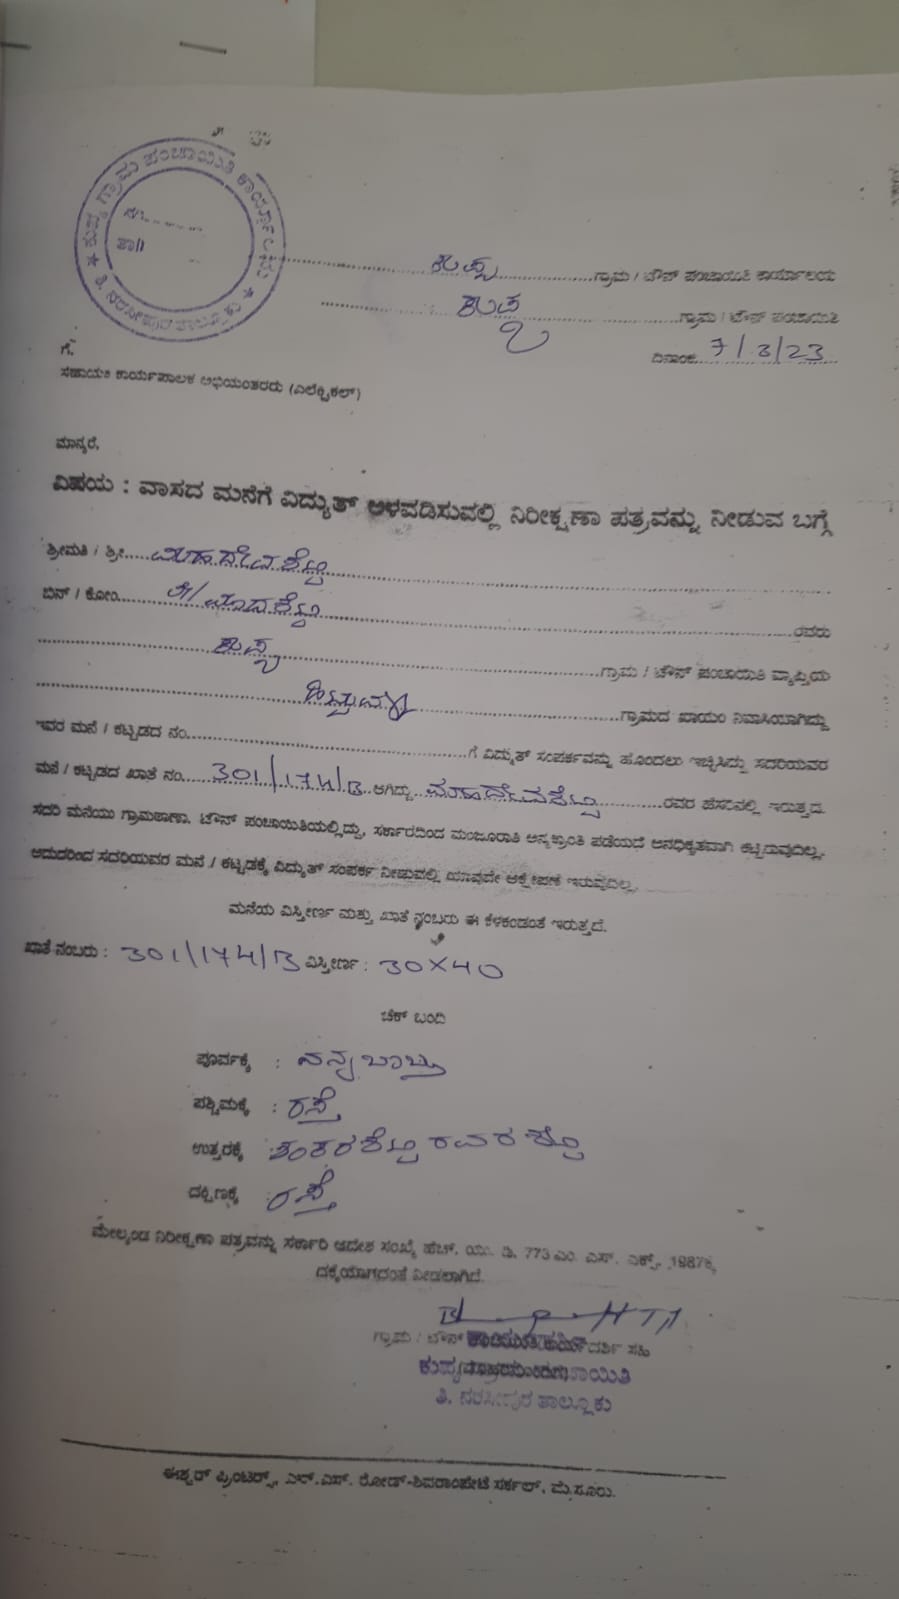 ಕುಪ್ಯ ಗ್ರಾಮ ಪಂಚಾಯಿತಿ ಕಾರ್ಯಾಲಯ
ತಿ. ನರಸೀಪುರ ತಾಲ್ಲೂಕು
ಕುಪ್ಯ ಗ್ರಾಮ / ಟೌನ್ ಪಂಚಾಯಿತಿ ಕಾರ್ಯಾಲಯ
ಕುಪ್ಯ ಗ್ರಾಮ / ಟೌನ್ ಪಂಚಾಯಿತಿ
ದಿನಾಂಕ 7/3/23
ಗೆ,
ಸಹಾಯಕ ಕಾರ್ಯಪಾಲಕ ಅಭಿಯಂತರರು (ಎಲೆಕ್ಟ್ರಿಕಲ್)
ಮಾನ್ಯರೆ,
ವಿಷಯ : ವಾಸದ ಮನೆಗೆ ವಿದ್ಯುತ್ ಅಳವಡಿಸುವಲ್ಲಿ ನಿರೀಕ್ಷಣಾ ಪತ್ರವನ್ನು ನೀಡುವ ಬಗ್ಗೆ
ಶ್ರೀಮತಿ / ಶ್ರೀ ಮಹದೇವಶೆಟ್ಟಿ
ಬಿನ್ / ಕೋಂ ಲೇ/ ಮಾದಶೆಟ್ಟಿ ರವರು
ಕುಪ್ಯ ಗ್ರಾಮ / ಟೌನ್ ಪಂಚಾಯಿತಿ ವ್ಯಾಪ್ತಿಯ
ಗ್ರಾಮದ ಖಾಯಂ ನಿವಾಸಿಯಾಗಿದ್ದು
ಇವರ ಮನೆ / ಕಟ್ಟಡದ ನಂ. ಗೆ ವಿದ್ಯುತ್ ಸಂಪರ್ಕವನ್ನು ಹೊಂದಲು ಇಚ್ಛಿಸಿದ್ದು ಸದರಿಯವರ
ಮನೆ / ಕಟ್ಟಡದ ಖಾತೆ ನಂ. 301/174/B ಆಗಿದ್ದು ಮಹದೇವಶೆಟ್ಟಿ ರವರ ಹೆಸರಿನಲ್ಲಿ ಇರುತ್ತದೆ.
ಸದರಿ ಮನೆಯು ಗ್ರಾಮಠಾಣಾ. ಟೌನ್ ಪಂಚಾಯಿತಿಯಲ್ಲಿದ್ದು, ಸರ್ಕಾರದಿಂದ ಮಂಜೂರಾತಿ ಅನ್ಯಕ್ರಾಂತಿ ಪಡೆಯದೆ ಅನಧಿಕೃತವಾಗಿ ಕಟ್ಟಿರುವುದಿಲ್ಲ.
ಆದುದರಿಂದ ಸದರಿಯವರ ಮನೆ / ಕಟ್ಟಡಕ್ಕೆ ವಿದ್ಯುತ್ ಸಂಪರ್ಕ ನೀಡುವಲ್ಲಿ ಯಾವುದೇ ಆಕ್ಷೇಪಣೆ ಇರುವುದಿಲ್ಲ.
ಮನೆಯ ವಿಸ್ತೀರ್ಣ ಮತ್ತು ಖಾತೆ ನಂಬರು ಈ ಕೆಳಕಂಡಂತೆ ಇರುತ್ತದೆ.
ಖಾತೆ ನಂಬರು : 301/174/B ವಿಸ್ತೀರ್ಣ : 30×40
ಚೆಕ್ ಬಂದಿ
ಪೂರ್ವಕ್ಕೆ :
ಪಶ್ಚಿಮಕ್ಕೆ : ರಸ್ತೆ
ಉತ್ತರಕ್ಕೆ : ಶಂಕರಶೆಟ್ಟಿ ರವರ
ದಕ್ಷಿಣಕ್ಕೆ : ರಸ್ತೆ
ಮೇಲ್ಕಂಡ ನಿರೀಕ್ಷಣಾ ಪತ್ರವನ್ನು ಸರ್ಕಾರಿ ಆದೇಶ ಸಂಖ್ಯೆ ಹೆಚ್. ಯು. ಡಿ. 773 ಎಂ. ಎಸ್. ಎಕ್ಸ್. 1987ಕ್ಕೆ
ಧಕ್ಕೆಯಾಗದಂತೆ ನೀಡಲಾಗಿದೆ.
ಗ್ರಾಮ / ಟೌನ್ ಸಹಿ
ತಿ. ನರಸೀಪುರ ತಾಲ್ಲೂಕು
ಈಶ್ವರ್ ಪ್ರಿಂಟರ್ಸ್, ಎಲ್.ಎಸ್. ರೋಡ್-ಶಿವರಾಂಪೇಟೆ ಸರ್ಕಲ್, ಮೈಸೂರು.